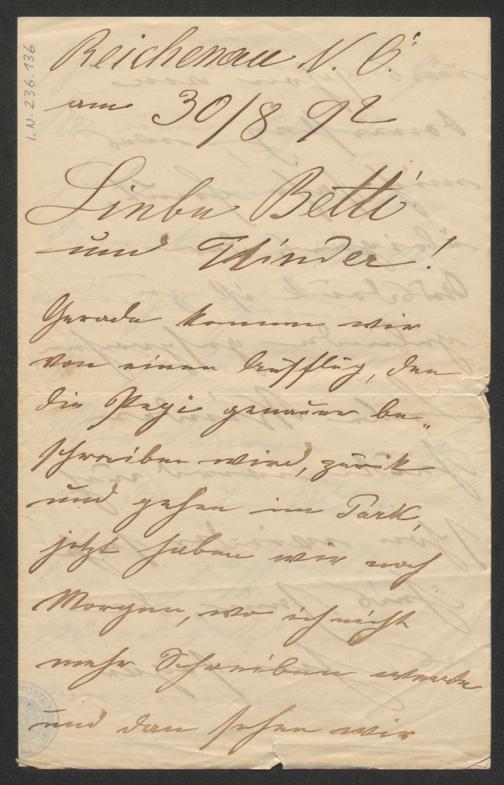 I.N. 236.136
Reichenau N. Ö.
am 30/8 92
Liebe Betti
und Kinder!
Gerade komen wir
von einen Ausflug, den
die Pepi genauer be„
schreiben wird, zurück
und gehen im Park,
jetzt haben wir noch
Morgen, wo ich nicht
mehr Schreiben werde
und dan sehen wir